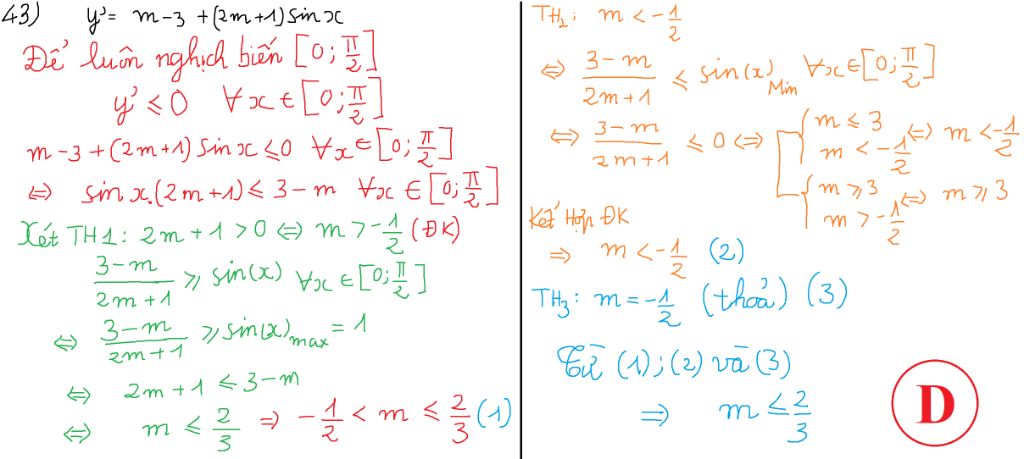 43) y' = m-3 + (2m+1) sin x
Để luôn nghịch biến [0; π/2]
y' ≤ 0 ∀x ∈ [0; π/2]
m-3 + (2m+1) sin x ≤ 0 ∀x ∈ [0; π/2]
⇔ sin x.(2m+1) ≤ 3-m ∀x ∈ [0; π/2]
Xét TH1: 2m+1 > 0 ⇔ m > -1/2 (ĐK)
(3-m)/(2m+1) ≥ sin(x) ∀x ∈ [0; π/2]
⇔ (3-m)/(2m+1) ≥ sin(x) max = 1
⇔ 2m+1 ≤ 3-m
⇔ m ≤ 2/3 ⇒ -1/2 < m ≤ 2/3 (1)
TH2: m < -1/2
⇔ (3-m)/(2m+1) ≤ sin(x) Min ∀x ∈ [0; π/2]
⇔ (3-m)/(2m+1) ≤ 0 ⇔ [ { m ≤ 3
m < -1/2 ⇔ m < -1/2
{ m ≥ 3
m > -1/2 ⇔ m ≥ 3
Kết Hợp ĐK
⇒ m < -1/2 (2)
TH3: m = -1/2 (thoả) (3)
Từ (1); (2) và (3)
⇒ m ≤ 2/3
D